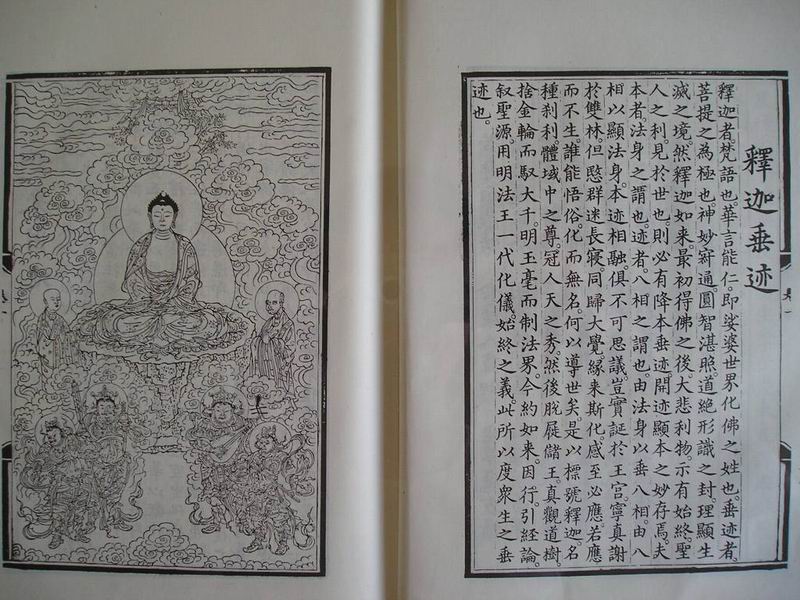 釋迦垂迹
釋迦者。梵語也。華言能仁。即娑婆世界化佛之姓也。垂迹者。
菩提之為極也。神妙寂通。圓智湛照。道絕形識之封。理顯生
滅之境。然釋迦如來。最初得佛之後。大悲利物。示有始終。聖
人之利見於世也。則必有降本垂迹。開迹顯本之妙存焉。夫
本者。法身之謂也。迹者。八相之謂也。由法身以垂八相。由八
相以顯法身。本迹相融。俱不可思議。豈實誕於王宮。寧真謝
於雙林。但愍群迷長寢。同歸大覺。緣來斯化。感至必應。若應
而不生。誰能悟俗。化而無名。何以導世矣。是以標號釋迦。名
種剎利。體域中之尊。冠人天之秀。然後脫屣儲王。真觀道樹。
捨金輪而馭大千。明玉毫而制法界。今約如來。因行。引經論。
叙聖源。用明法王一代化儀。始終之義。此所以度衆生之垂
迹也。